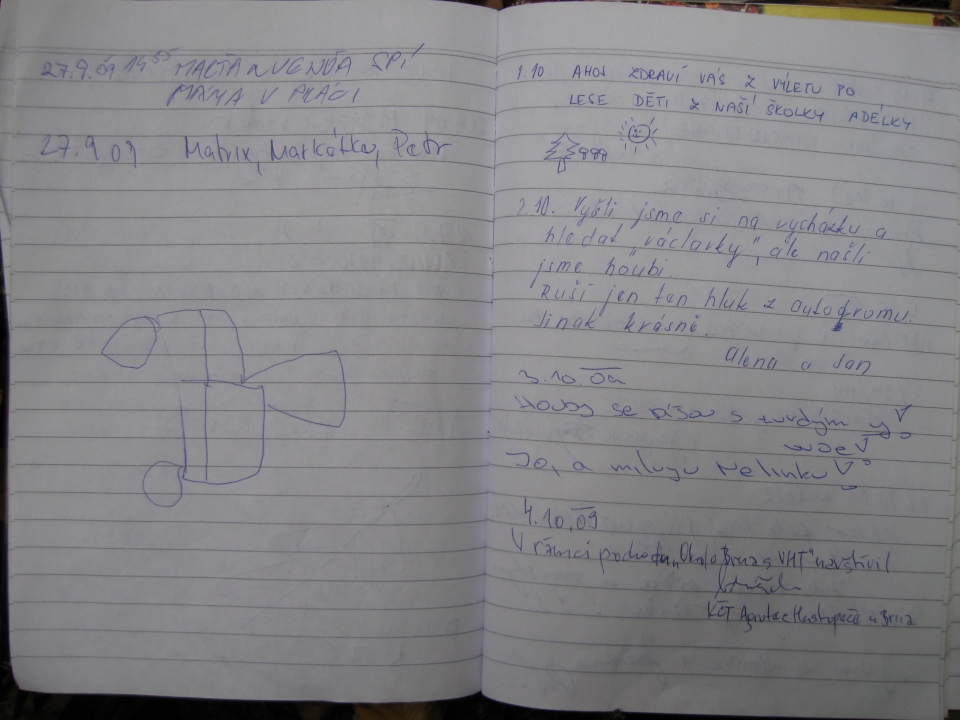 27.9.09 14:55 MARŤA A VENDA SPÍ
MAMA V PRÁCI
27.9.09 Matrix, Markétka, Petr
1.10 AHOJ ZDRAVÍ VÁS Z VÝLETU PO
LESE DĚTI Z NAŠÍ ŠKOLKY ADÉLKY
2.10. Vyšli jsme si na vycházku a
hledat „václavky", ale našli
jsme houbi.
Ruší jen ten hluk z autodromu.
Jinak krásně.
Alena a Jan
3.10.09
se píšou s tvrdým y
Jo, a miluju Nelinku
4.10.09
V rámci pochodu „Okolo Brna s VHT" navštívil
KČT Hustopeče u Brna